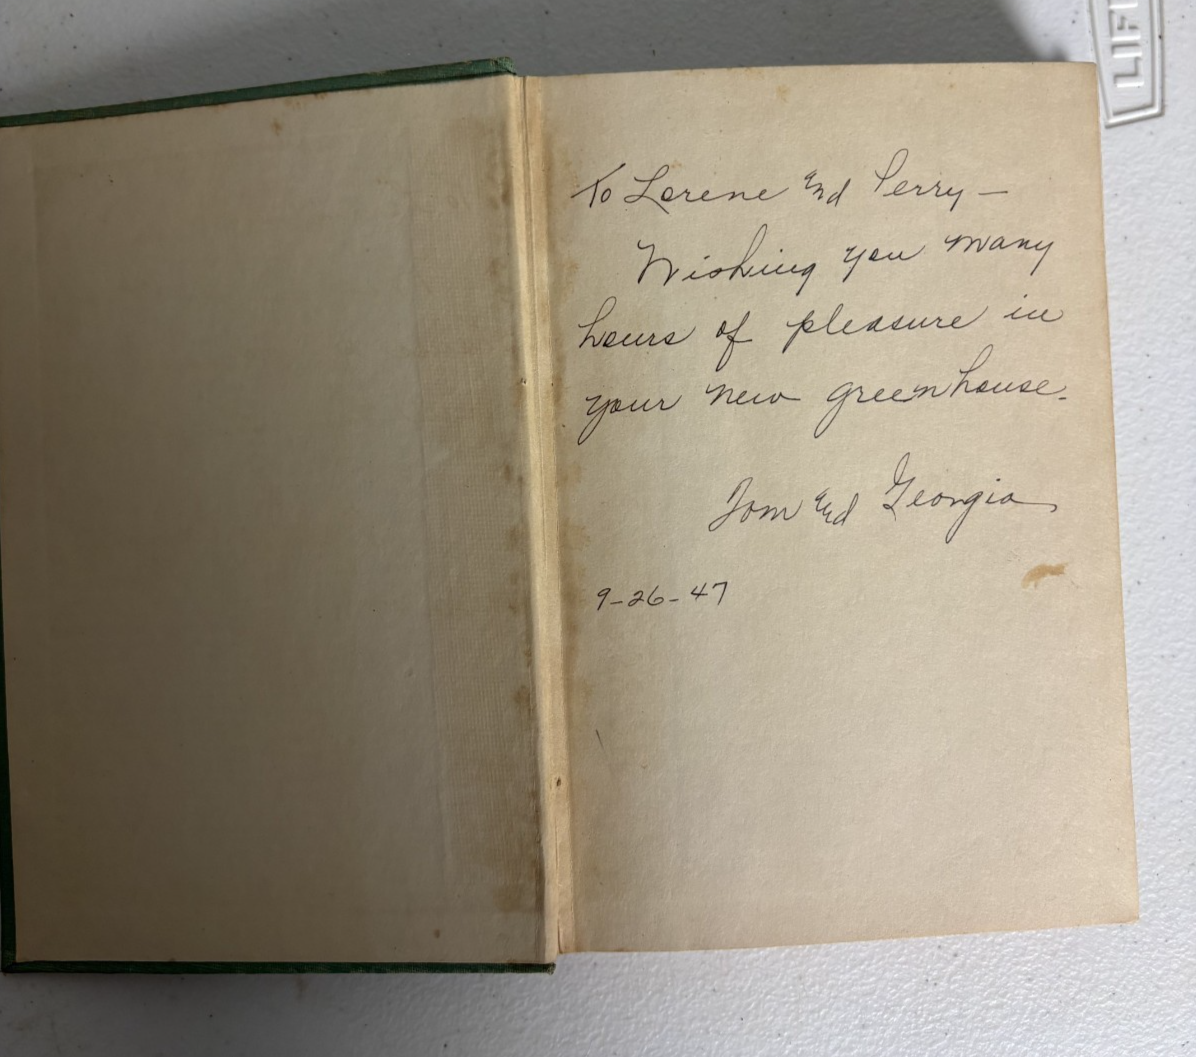 To Lorene and Perry—
Wishing you many
hours of pleasure in
your new greenhouse.
Tom and Georgia
9-26-47
LIF